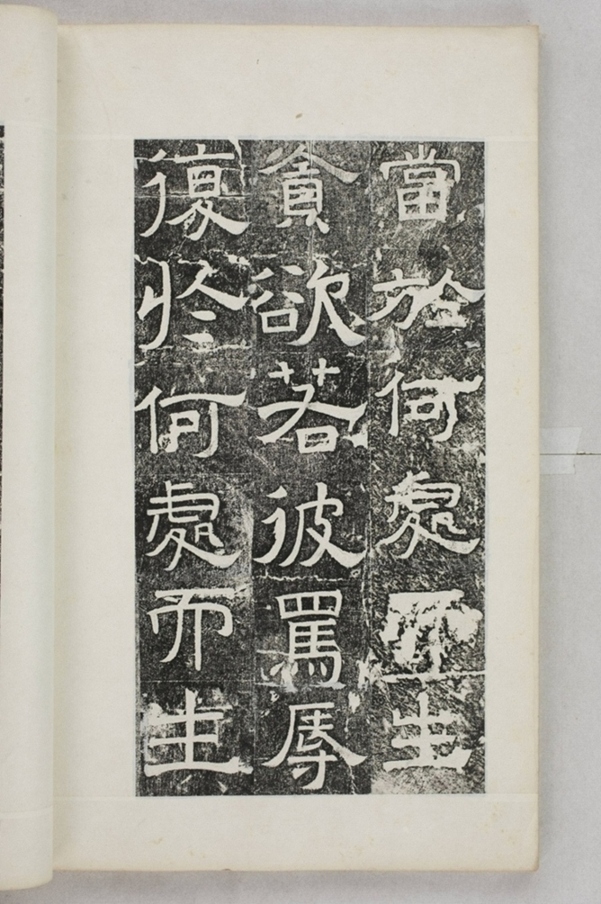 當於何處而生
貪欲若彼罵辱
復於何處而生